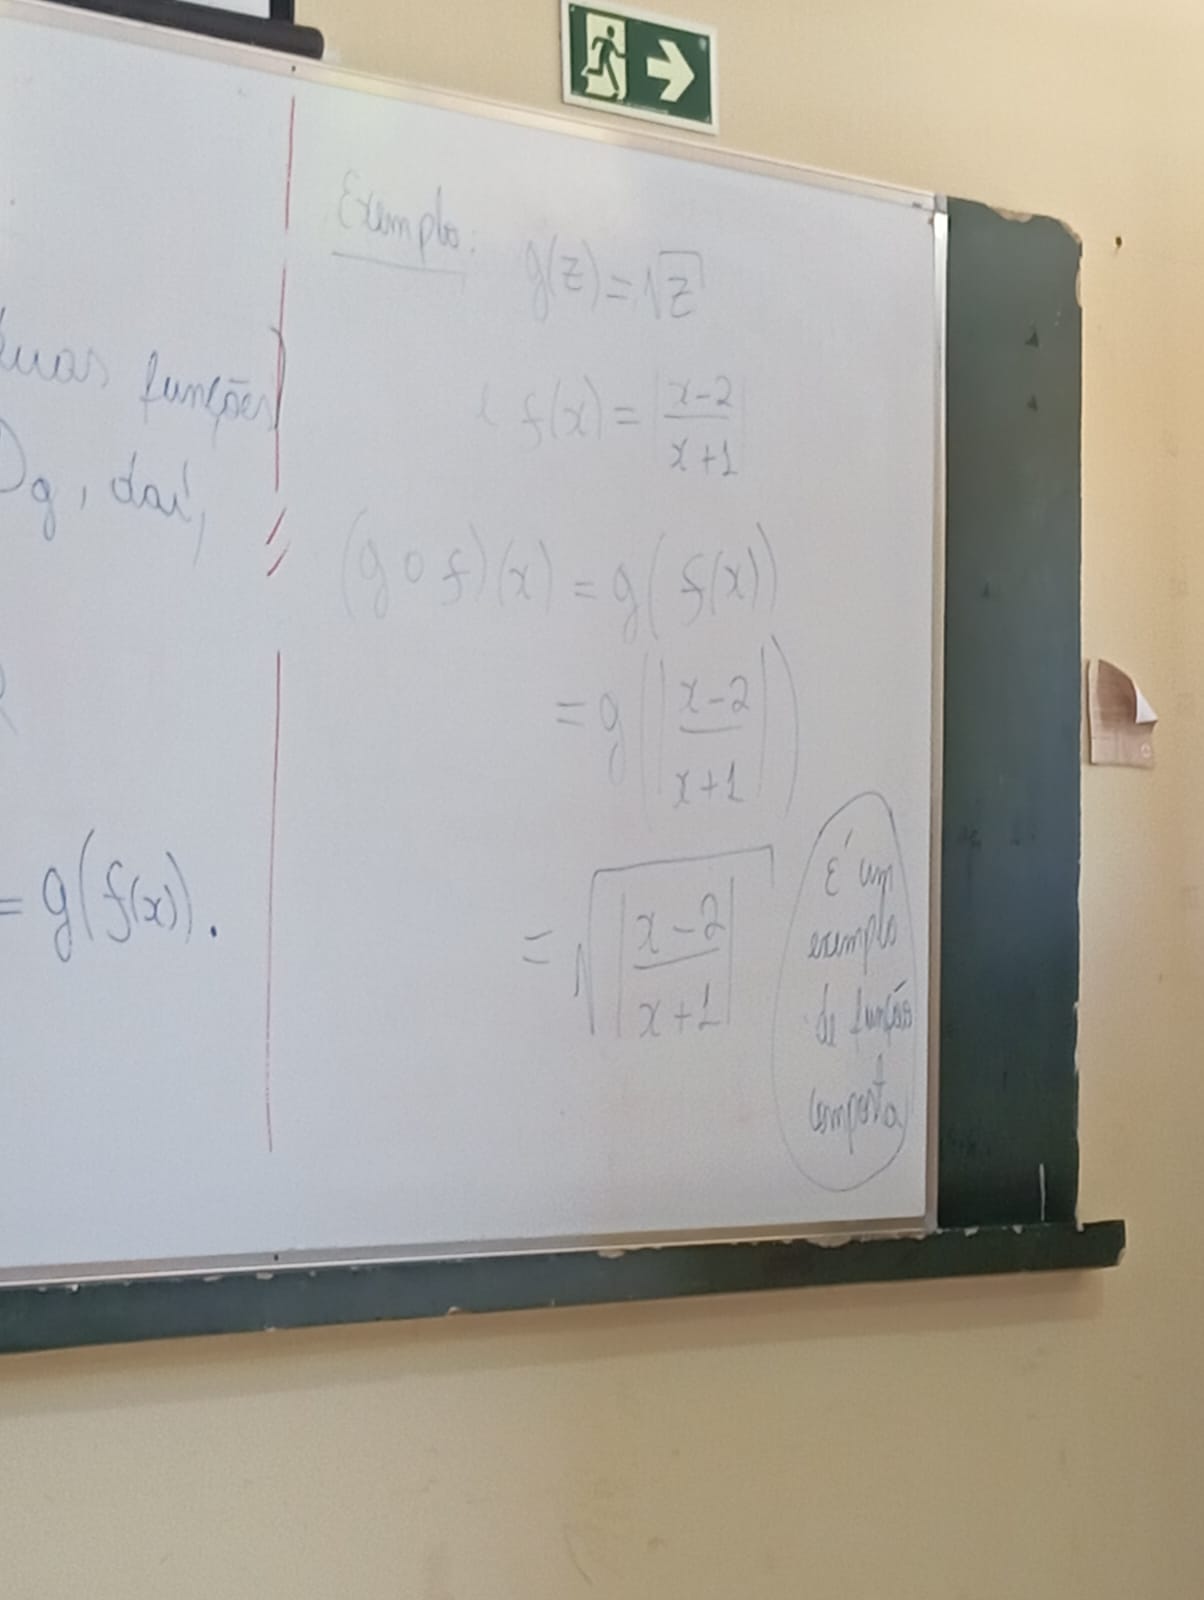 duas funções
Dg, daí,
= g(f(x)).
Exemplo: g(z) = √z
e f(x) = |x-2 / x+1|
(g o f)(x) = g(f(x))
= g(|x-2 / x+1|)
= √|x-2 / x+1|
É um
exemplo
de função
composta